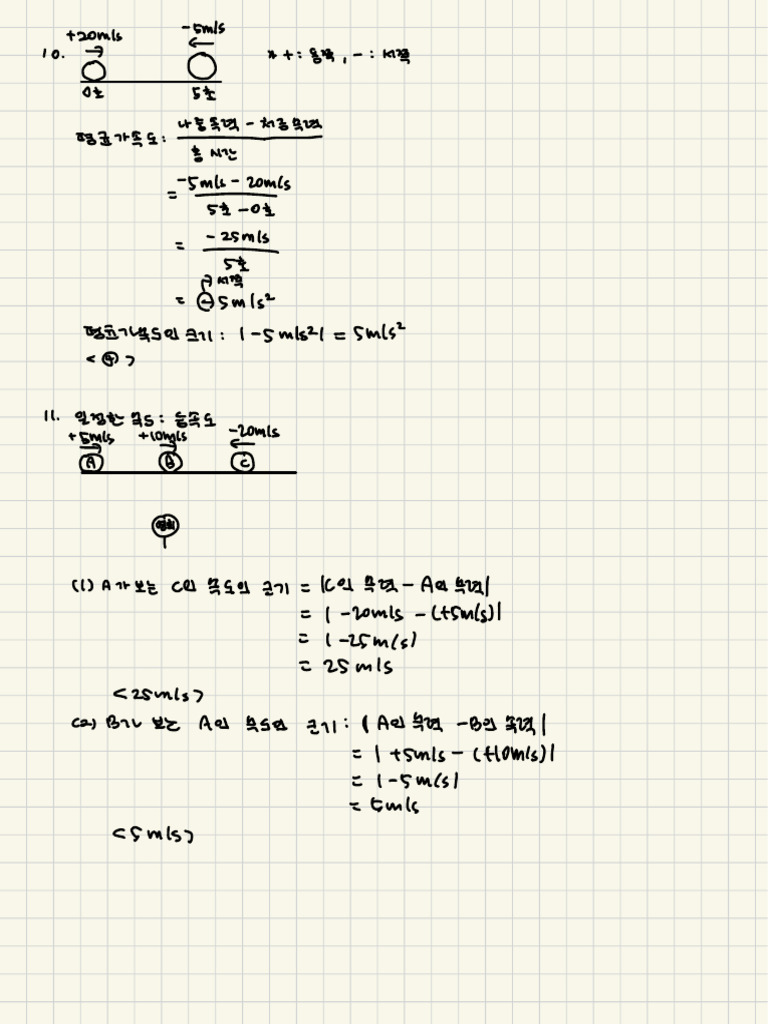 +20m/s -5m/s
10. * +: 동쪽, -: 서쪽
0초 5초
평균가속도: 나중속력 - 처음속력
총 시간
= -5m/s - 20m/s
5초 - 0초
= -25m/s
5초
서쪽
= -5m/s²
평균가속도의 크기: |-5m/s²| = 5m/s²
11. 일정한 속도: 등속도
+5m/s +10m/s -20m/s
A B C
(1) A가 보는 C의 속도의 크기 = |C의 속력 - A의 속력|
= |-20m/s - (+5m/s)|
= |-25m/s|
= 25m/s
<25m/s>
(2) B가 보는 A의 속도의 크기: |A의 속력 - B의 속력|
= |+5m/s - (+10m/s)|
= |-5m/s|
= 5m/s
<5m/s>